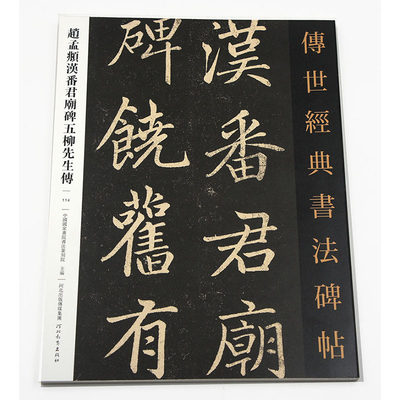 傳世經典書法碑帖
漢番君廟
碑饒舊有
趙孟頫漢番君廟碑五柳先生傳
114
中國國家畫院書法篆刻院 主編
河北出版傳媒集團
河北教育出版社